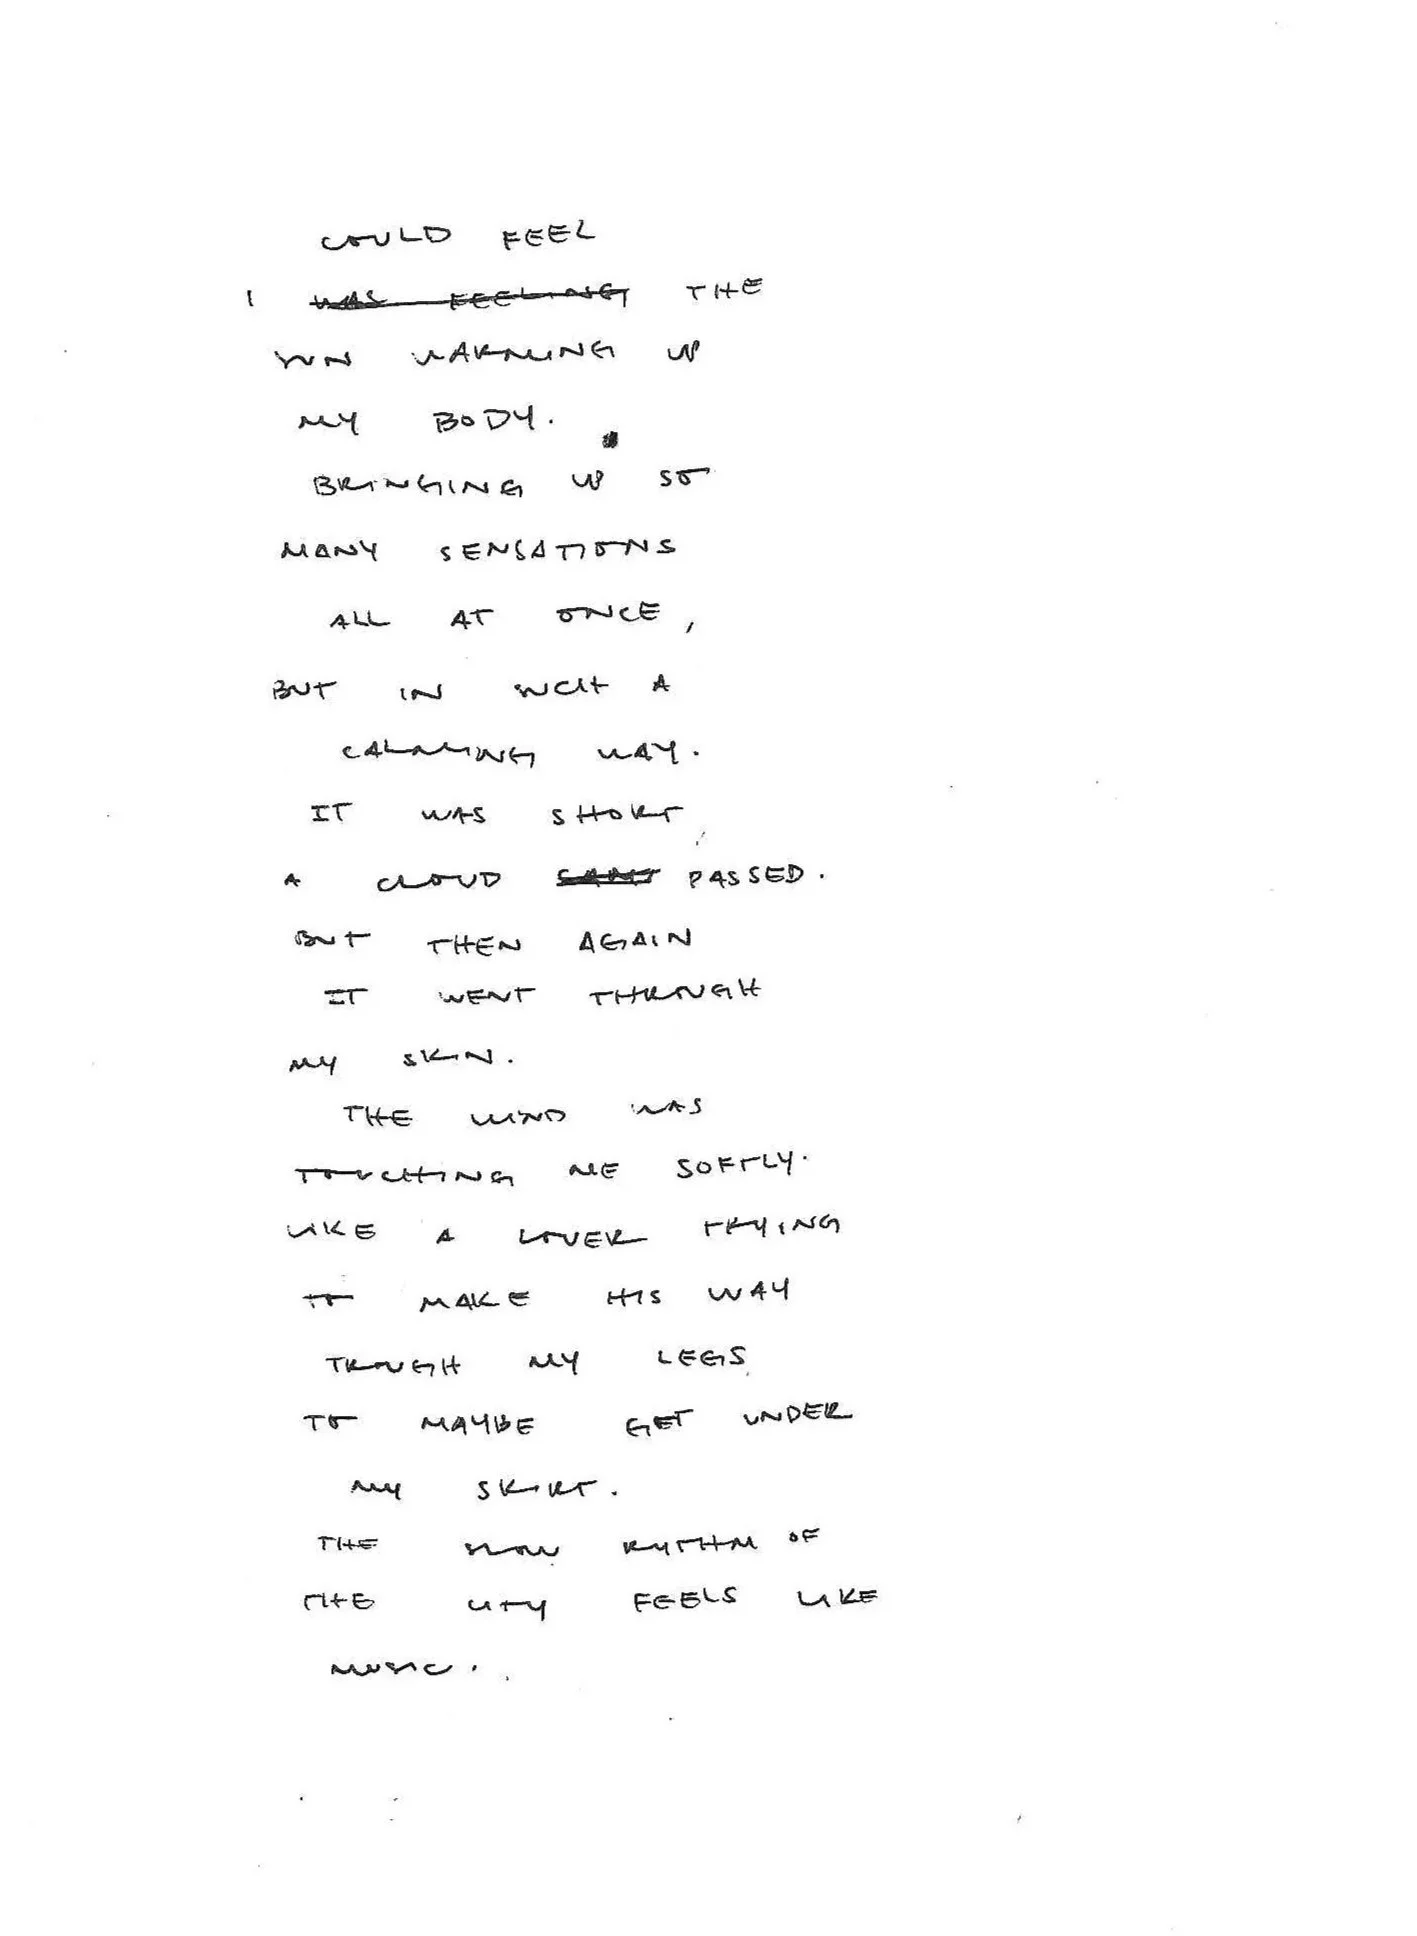 COULD FEEL
I WAS FEELING THE
SUN WARMING UP
MY BODY.
BRINGING UP SO
MANY SENSATIONS
ALL AT ONCE,
BUT IN SUCH A
CALMING WAY.
IT WAS SHORT
A CLOUD PASSED.
BUT THEN AGAIN
IT WENT THROUGH
MY SKIN.
THE WIND WAS
TOUCHING ME SOFTLY.
LIKE A LOVER TRYING
TO MAKE HIS WAY
TROUGH MY LEGS
TO MAYBE GET UNDER
MY SKIRT.
THE SLOW RYTHM OF
THE CITY FEELS LIKE
MUSIC.